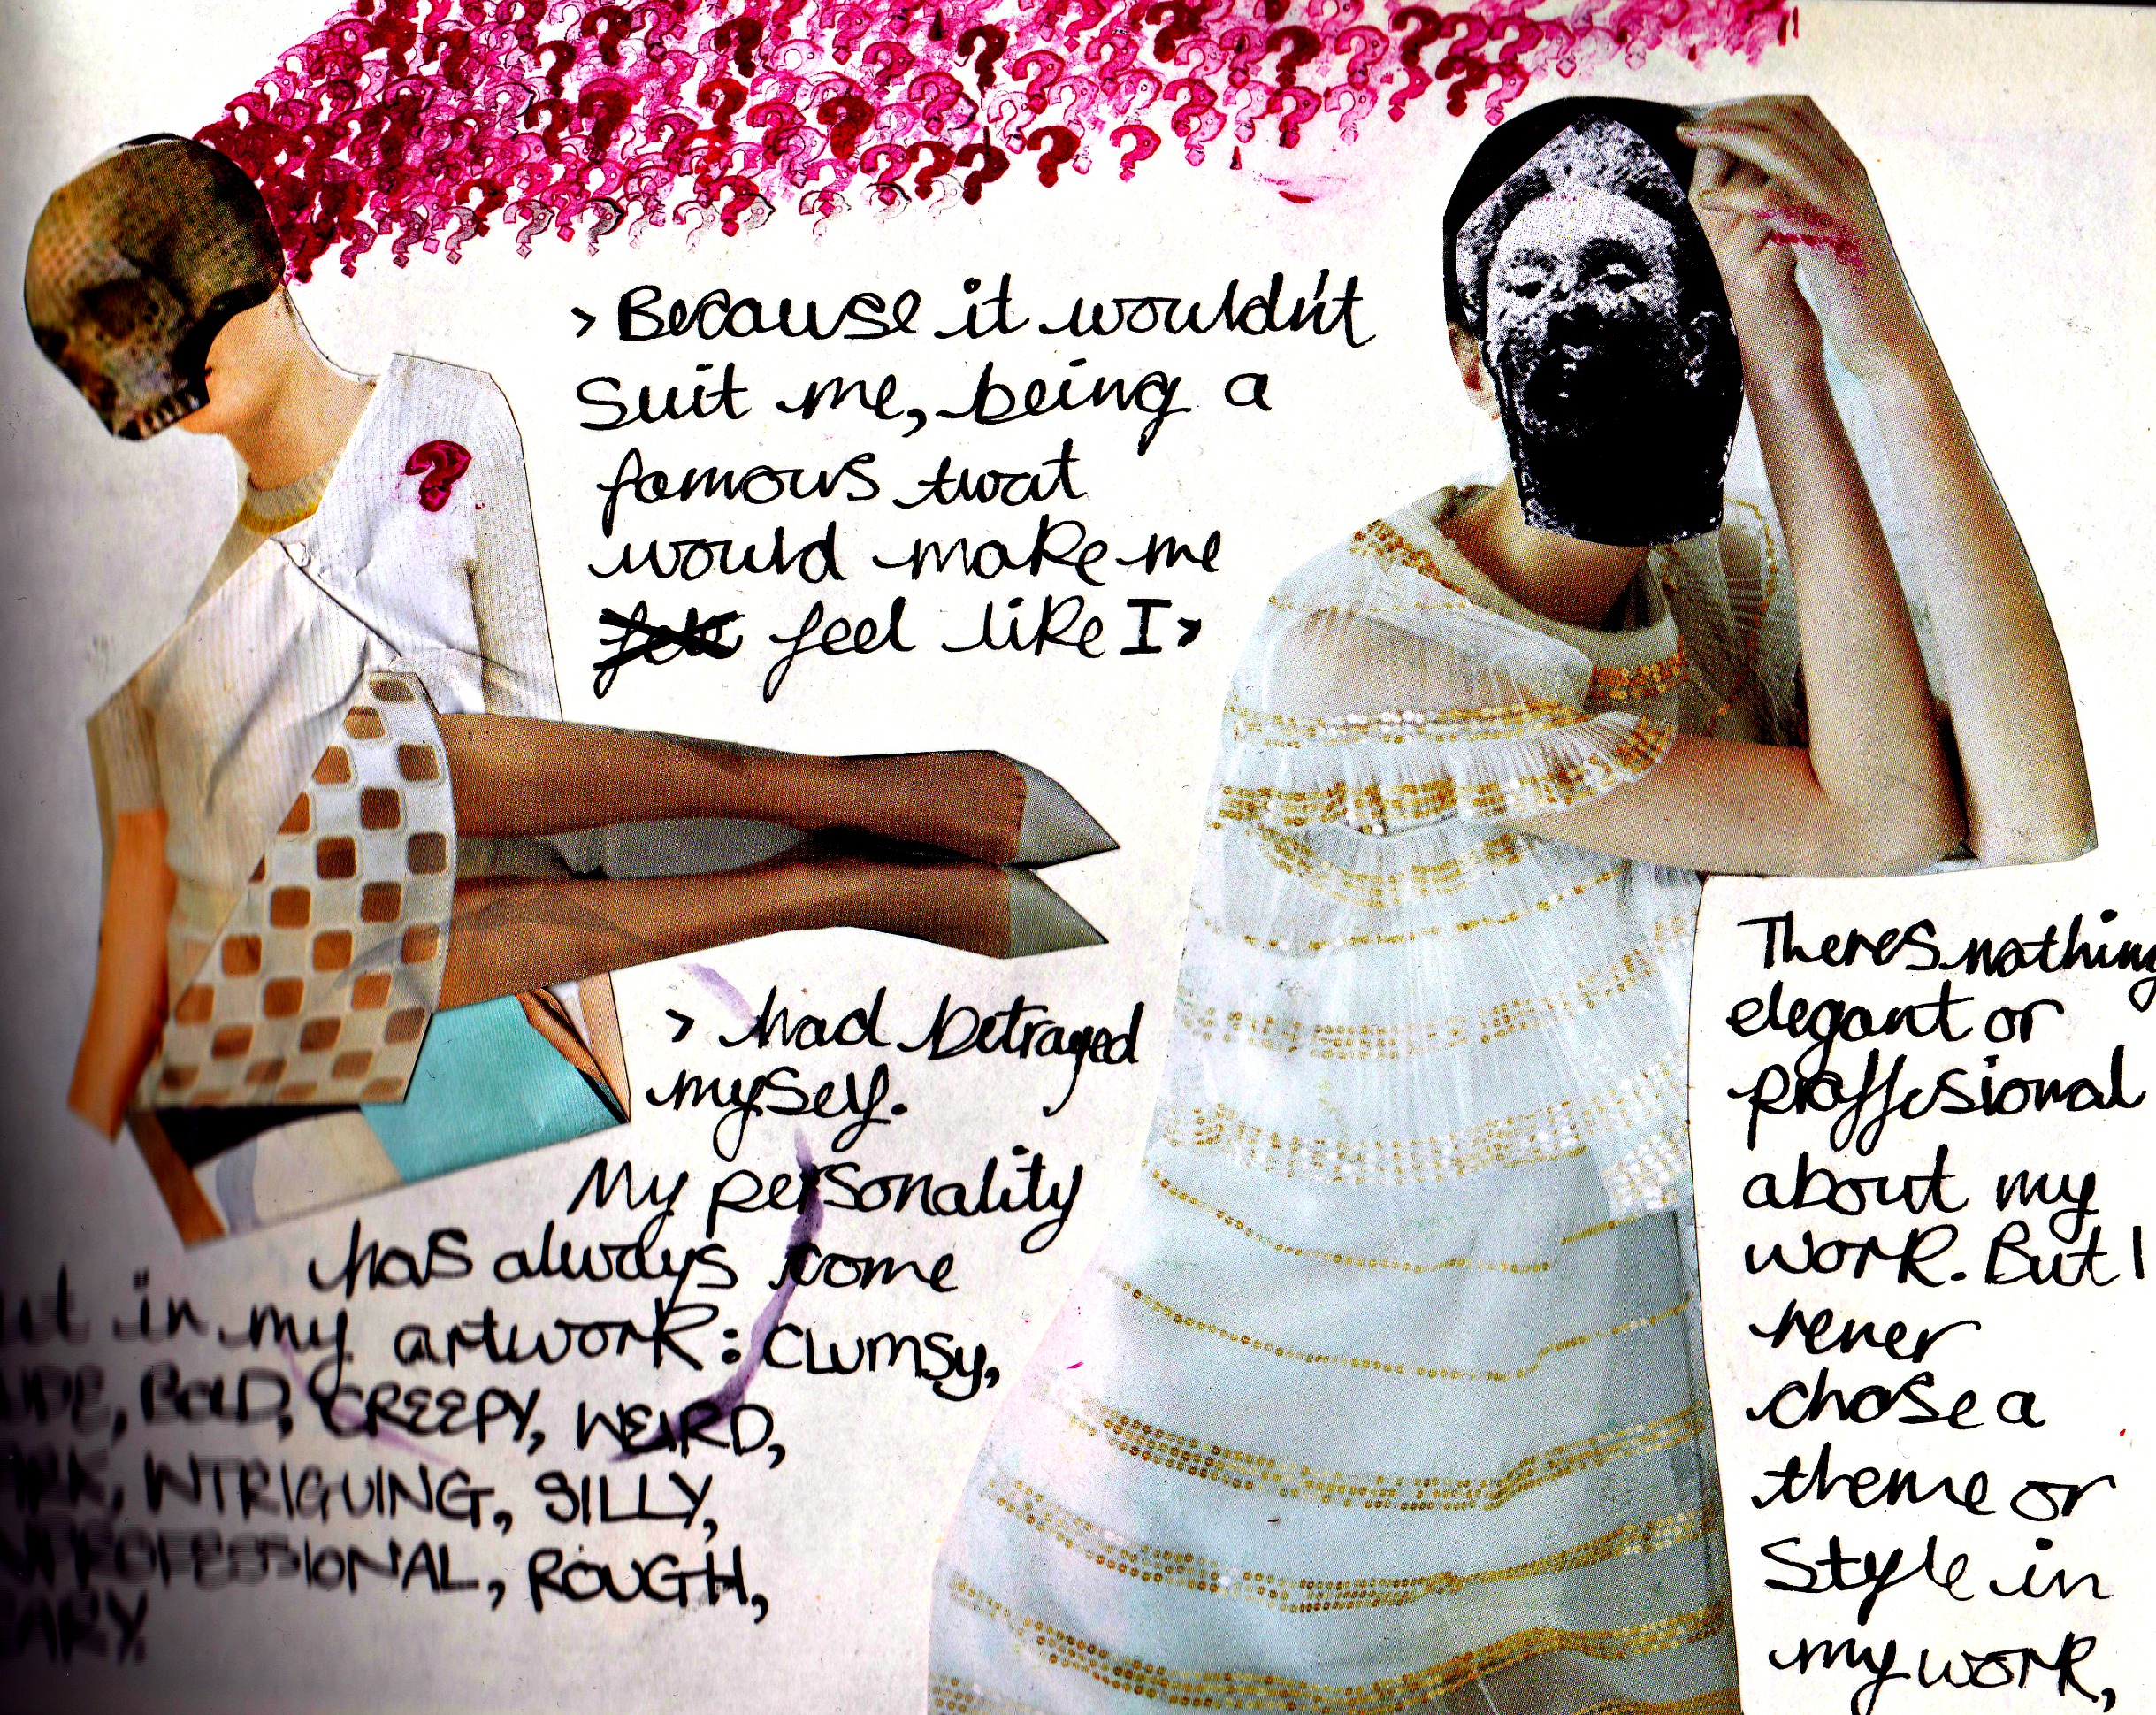 > Because it wouldn't
suit me, being a
famous twat
would make me
feel like I >
> had betrayed
myself.
My personality
has always come
in my artwork: CLUMSY,
BOLD, CREEPY, WEIRD,
INTRIGUING, SILLY,
UNPROFESSIONAL, ROUGH,
Theres nothing
elegant or
proffesional
about my
work. But I
never
chose a
theme or
style in
my work,
?